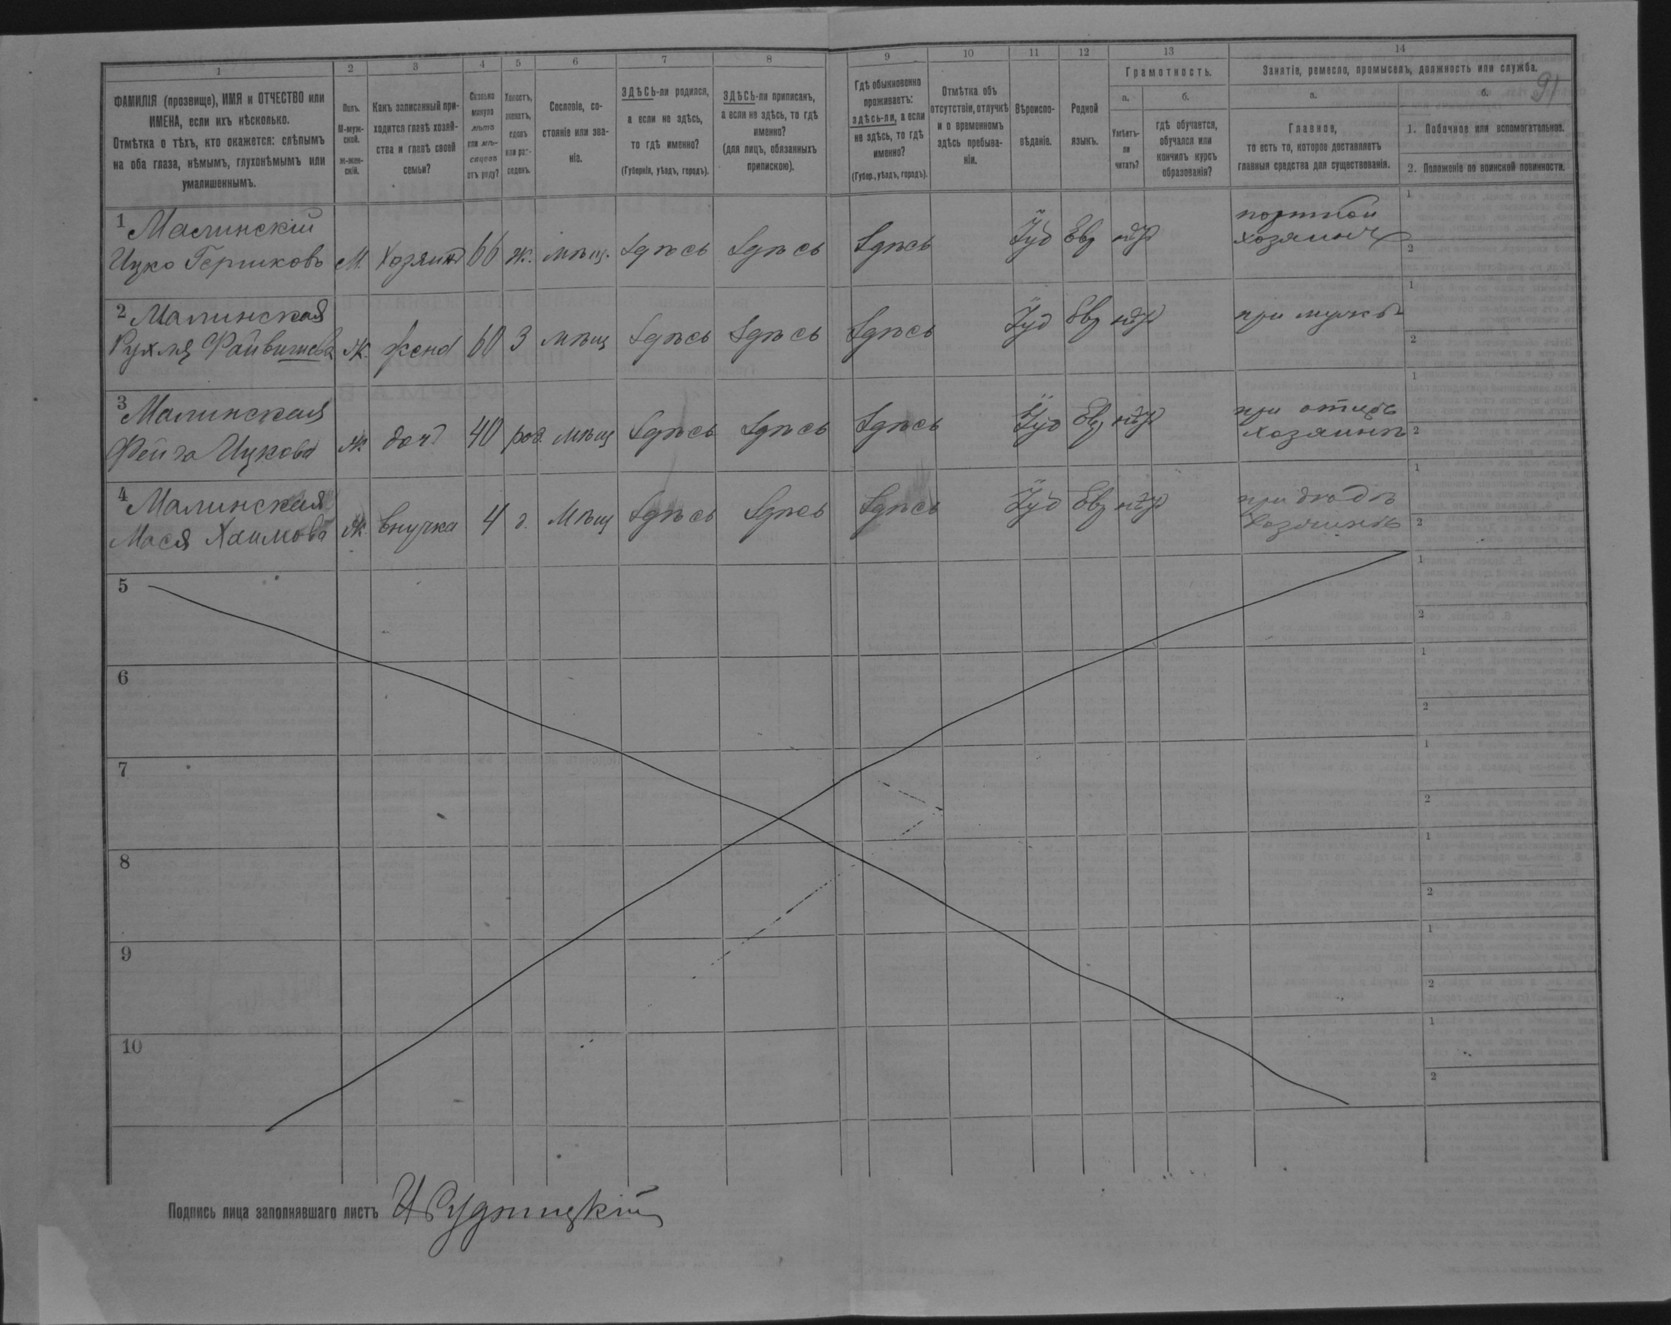 1 2 3 4 5 6 7 8 9 10 11 12 13 14
91
ФАМИЛІЯ (прозвище), ИМЯ и ОТЧЕСТВО или
ИМЕНА, если ихъ нѣсколько.
Отмѣтка о тѣхъ, кто окажется: слѣпымъ
на оба глаза, нѣмымъ, глухонѣмымъ или
умалишеннымъ.
Полъ.
М-муж-
ской.
ж-жен-
скій.
Какъ записанный при-
ходится главѣ хозяй-
ства и главѣ своей
семьи?
Сколько
минуло
лѣтъ
или мѣ-
сяцевъ
отъ роду?
Холостъ,
женатъ,
вдовъ
или раз-
веденъ.
Сословіе, со-
стояніе или зва-
ніе.
ЗДѢСЬ-ли родился,
а если не здѣсь,
то гдѣ именно?
(Губернія, уѣздъ, городъ).
ЗДѢСЬ-ли приписанъ,
а если не здѣсь, то гдѣ
именно?
(для лицъ, обязанныхъ
припиской).
Гдѣ обыкновенно
проживаетъ:
здѣсь-ли, а если
не здѣсь, то гдѣ
именно?
(Губер., уѣздъ, городъ).
Отмѣтка объ
отсутствіи, отлучкѣ
и о временномъ
здѣсь пребыва-
ніи.
Вѣроиспо-
вѣданіе.
Родной
языкъ.
Грамотность.
а.
Умѣетъ-
ли
читать?
б.
гдѣ обучается,
обучался или
кончилъ курсъ
образованія?
Занятіе, ремесло, промыселъ, должность или служба.
а.
Главное,
то есть то, которое доставляетъ
главныя средства для существованія.
б.
1. Побочное или вспомогательное.
2. Положеніе по воинской повинности.
1 Малинскій портной 1
Ицко Гершковъ М. Хозяинъ 66 ж. мѣщ. Здѣсь Здѣсь Здѣсь Іуд Евр нѣт хозяинъ 2
2 Малинская 1
Рухля Файвишева Ж. жена 60 З мѣщ Здѣсь Здѣсь Здѣсь Іуд Евр нѣт при мужѣ 2
3 Малинская при отцѣ 1
Фейга Ицкова Ж. дочь 40 раз. мѣщ Здѣсь Здѣсь Здѣсь Іуд Евр нѣт хозяинѣ 2
4 Малинская при дѣдѣ 1
Мася Хаимова Ж. внучка 4 д. мѣщ Здѣсь Здѣсь Здѣсь Іуд Евр нѣт Хозяинѣ 2
5 1
2
6 1
2
7 1
2
8 1
2
9 1
2
10 1
2
Подпись лица заполнявшаго листъ И Рудницкій